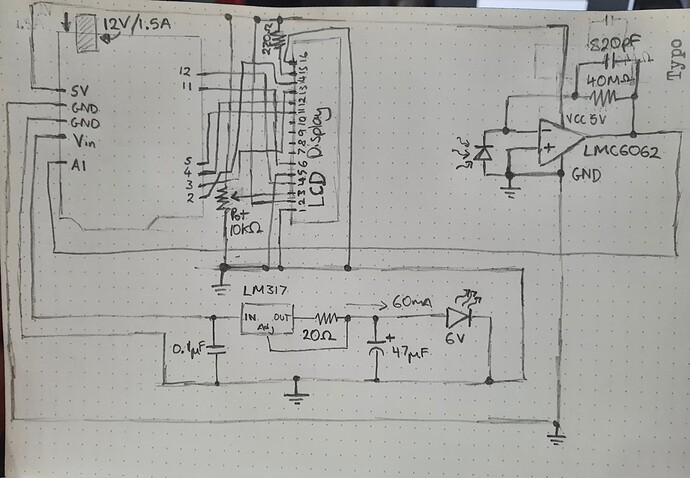 12V/1.5A
5V
GND
GND
Vin
A1
12
11
5
4
3
2
220Ω
16
15
14
13
12
11
10
9
8
7
6
5
4
3
2
1
LCD Display
Pot
10kΩ
820pF
40MΩ
VCC 5V
-
+
LMC6062
GND
Typo
LM317
IN
OUT
Adj
20Ω
60mA
0.1µF
+
47µF
6V